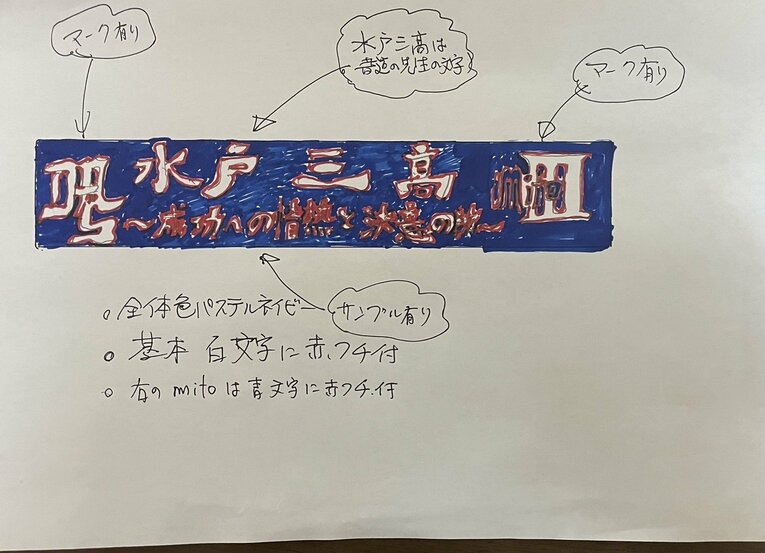 マーク有り
水戸三高は
書道の先生の文字
マーク有り
水戸三高
mito
III
～成功への情熱と決意の
サンプル有り
○全体色パステルネイビー
○基本 白文字に赤フチ付
○右のmitoは青文字に赤フチ付